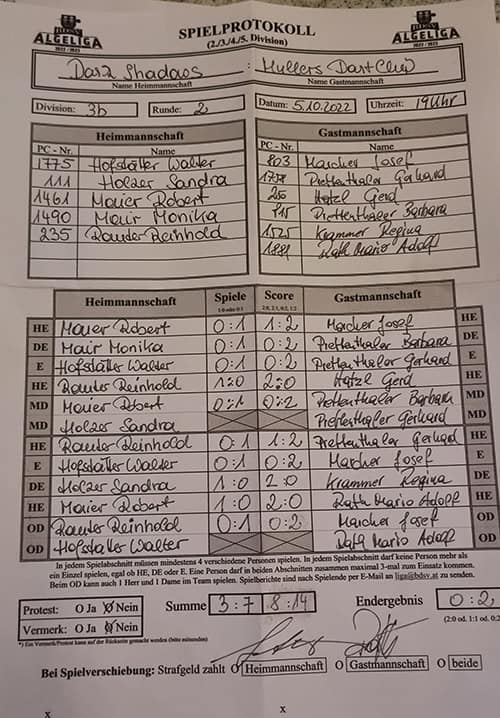 BDSV
ALGELIGA
2022 / 2023
SPIELPROTOKOLL
(2./3./4./5. Division)
BDSV
ALGELIGA
2022 / 2023
Darz Shadows : Mullers Dart Club
Name Heimmannschaft Name Gastmannschaft
Division: 3b Runde: 2 Datum: 5.10.2022 Uhrzeit: 19 Uhr
Heimmannschaft Gastmannschaft
PC - Nr. Name PC - Nr. Name
1775 Hofstätter Walter 803 Marcher Josef
111 Holzer Sandra Prettenthaler Gerhard
1461 Maier Robert Hatzl Gerd
1490 Mair Monika Prettenthaler Barbara
235 Rauter Reinhold 1525 Krammer Regina
1881 Rath Mario Adolf
Heimmannschaft Spiele Score Gastmannschaft
1:0 oder 0:1 2:0, 2:1, 0:2, 1:2
HE Maier Robert 0:1 1:2 Marcher Josef HE
DE Mair Monika 0:1 0:2 Prettenthaler Barbara DE
E Hofstätter Walter 0:1 0:2 Prettenthaler Gerhard E
HE Rauter Reinhold 1:0 2:0 Hatzl Gerd HE
MD Maier Robert 0:1 0:2 Prettenthaler Barbara MD
MD Holzer Sandra Prettenthaler Gerhard MD
HE Rauter Reinhold 0:1 1:2 Prettenthaler Gerhard HE
E Hofstätter Walter 0:1 0:2 Marcher Josef E
DE Holzer Sandra 1:0 2:0 Krammer Regina DE
HE Maier Robert 1:0 2:0 Rath Mario Adolf HE
OD Rauter Reinhold 0:1 0:2 Marcher Josef OD
OD Hofstätter Walter Rath Mario Adolf OD
In jedem Spielabschnitt müssen mindestens 4 verschiedene Personen spielen. In jedem Spielabschnitt darf keine Person mehr als
ein Einzel spielen, egal ob HE, DE oder E. Eine Person darf in beiden Abschnitten zusammen maximal 3-mal zum Einsatz kommen.
Beim OD kann auch 1 Herr und 1 Dame im Team spielen. Spielberichte sind nach Spielende per E-Mail an liga@bdsv.st zu senden.
Protest: O Ja O Nein Summe 3:7 8:14 Endergebnis 0:2
Vermerk: O Ja O Nein (2:0 od. 1:1 od. 0:2)
*) Ein Vermerk/Protest kann auf der Rückseite gemacht werden (bitte umwenden)
Bei Spielverschiebung: Strafgeld zahlt O Heimmannschaft O Gastmannschaft O beide
x x